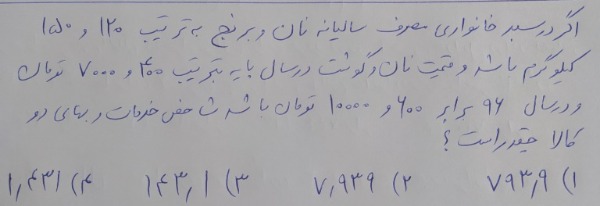 اگر در سبد خانواری مصرف سالیانه نان و برنج به ترتیب ۱۲۰ و ۱۵۰
کیلوگرم باشد و قیمت نان و گوشت در سال پایه بترتیب ۴۰۰ و ۷۰۰۰ تومان
و در سال ۹۶ برابر ۶۰۰ و ۱۰۰۰۰ تومان باشد شاخص خدمات و بهای دو
کالا چقدر است؟
۱) ۷۹۳٫۹ ۲) ۷٫۹۳۹ ۳) ۱۴۳٫۱ ۴) ۱٫۴۳۱